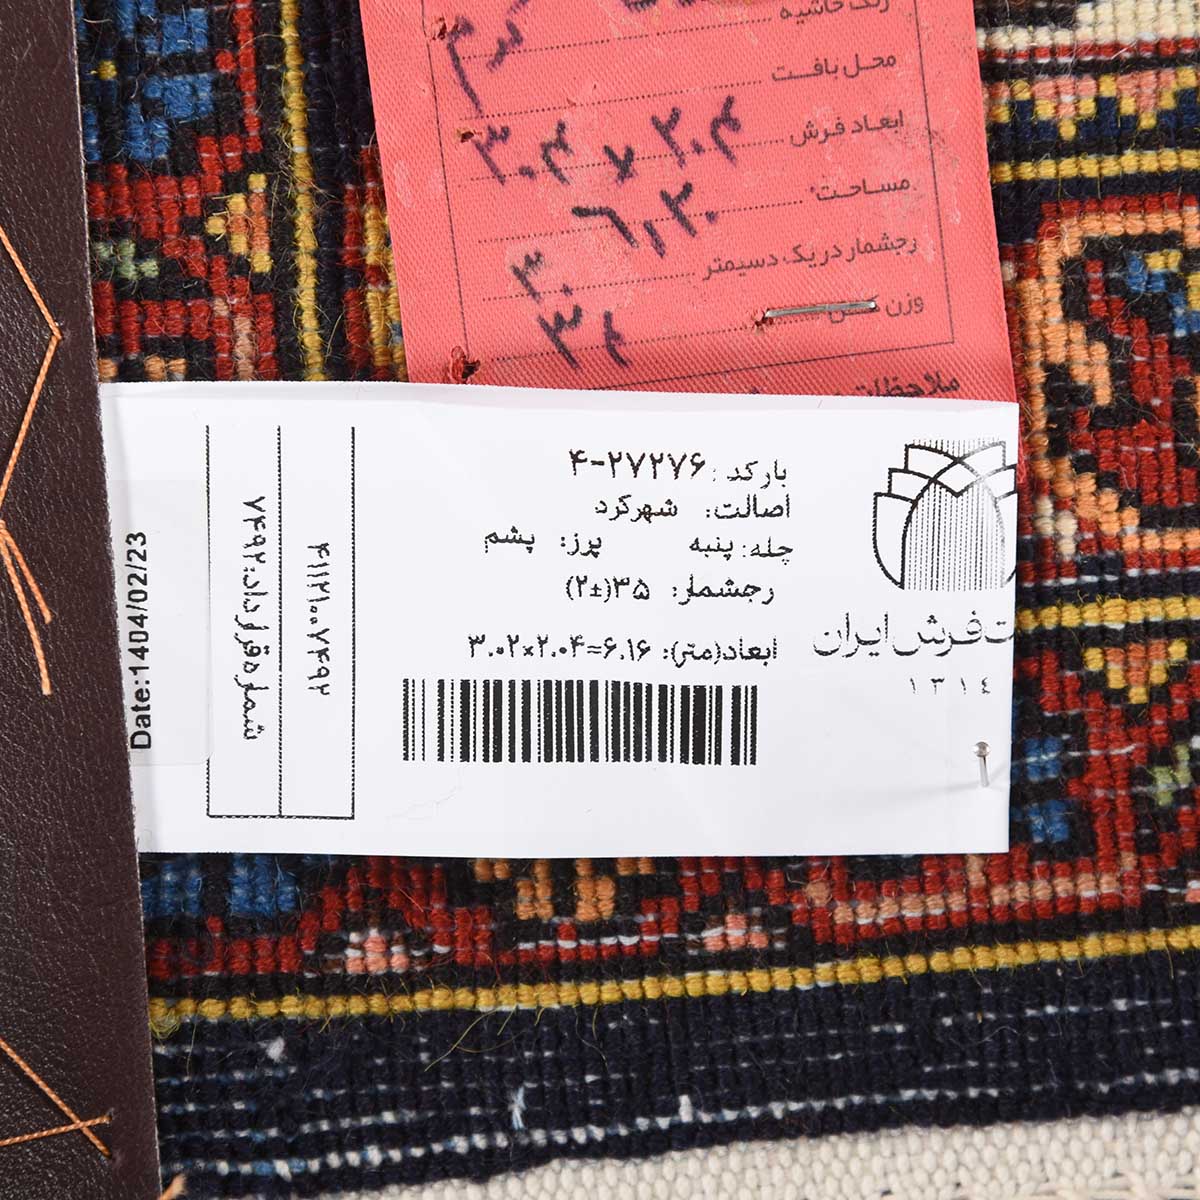 رنگ حاشیه
محل بافت
ابعاد فرش ۲۰۴ × ۳۰۲
مساحت ۶٫۲۰
رجشمار در یک دسیمتر ۳۰
وزن
ملاحظات
بارکد: ۲۷۲۷۶-۴
اصالت: شهرکرد
چله: پنبه پرز: پشم
رجشمار: ۳۵(±۲)
ابعاد(متر): ۳.۰۲×۲.۰۴=۶.۱۶
ت فرش ایران
۱۳۱۴
۴۱۱۲۱۰۰۷۴۹۲
شماره قرارداد: ۷۴۹۲
Date:1404/02/23